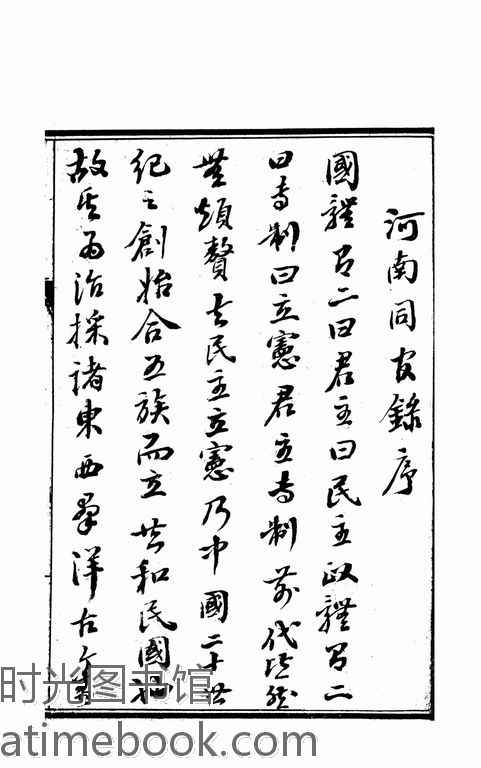 河南同官錄序
國體有二曰君主曰民主政體有二
曰專制曰立憲君主專制前代皆然
無煩贅言民主立憲乃中國二十世
紀之創始合五族而立共和民國
故其為治採諸東西羣洋古今
时光图书馆
atimebook.com